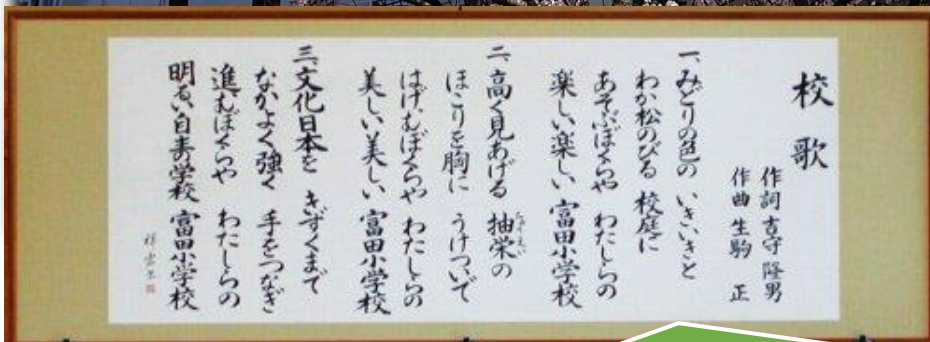 校歌
作詞 吉守隆男
作曲 生駒 正
一、みどりの色の いきいきと
わか松のびる 校庭に
あそぶぼくらや わたしらの
楽しい楽しい 富田小学校
二、高く見あげる 抽栄の
ほこりを胸に うけついで
はげむぼくらや わたしらの
美しい美しい 富田小学校
三、文化日本を きずくまで
なかよく強く 手をつなぎ
進むぼくらや わたしらの
明るい自専の学校 富田小学校